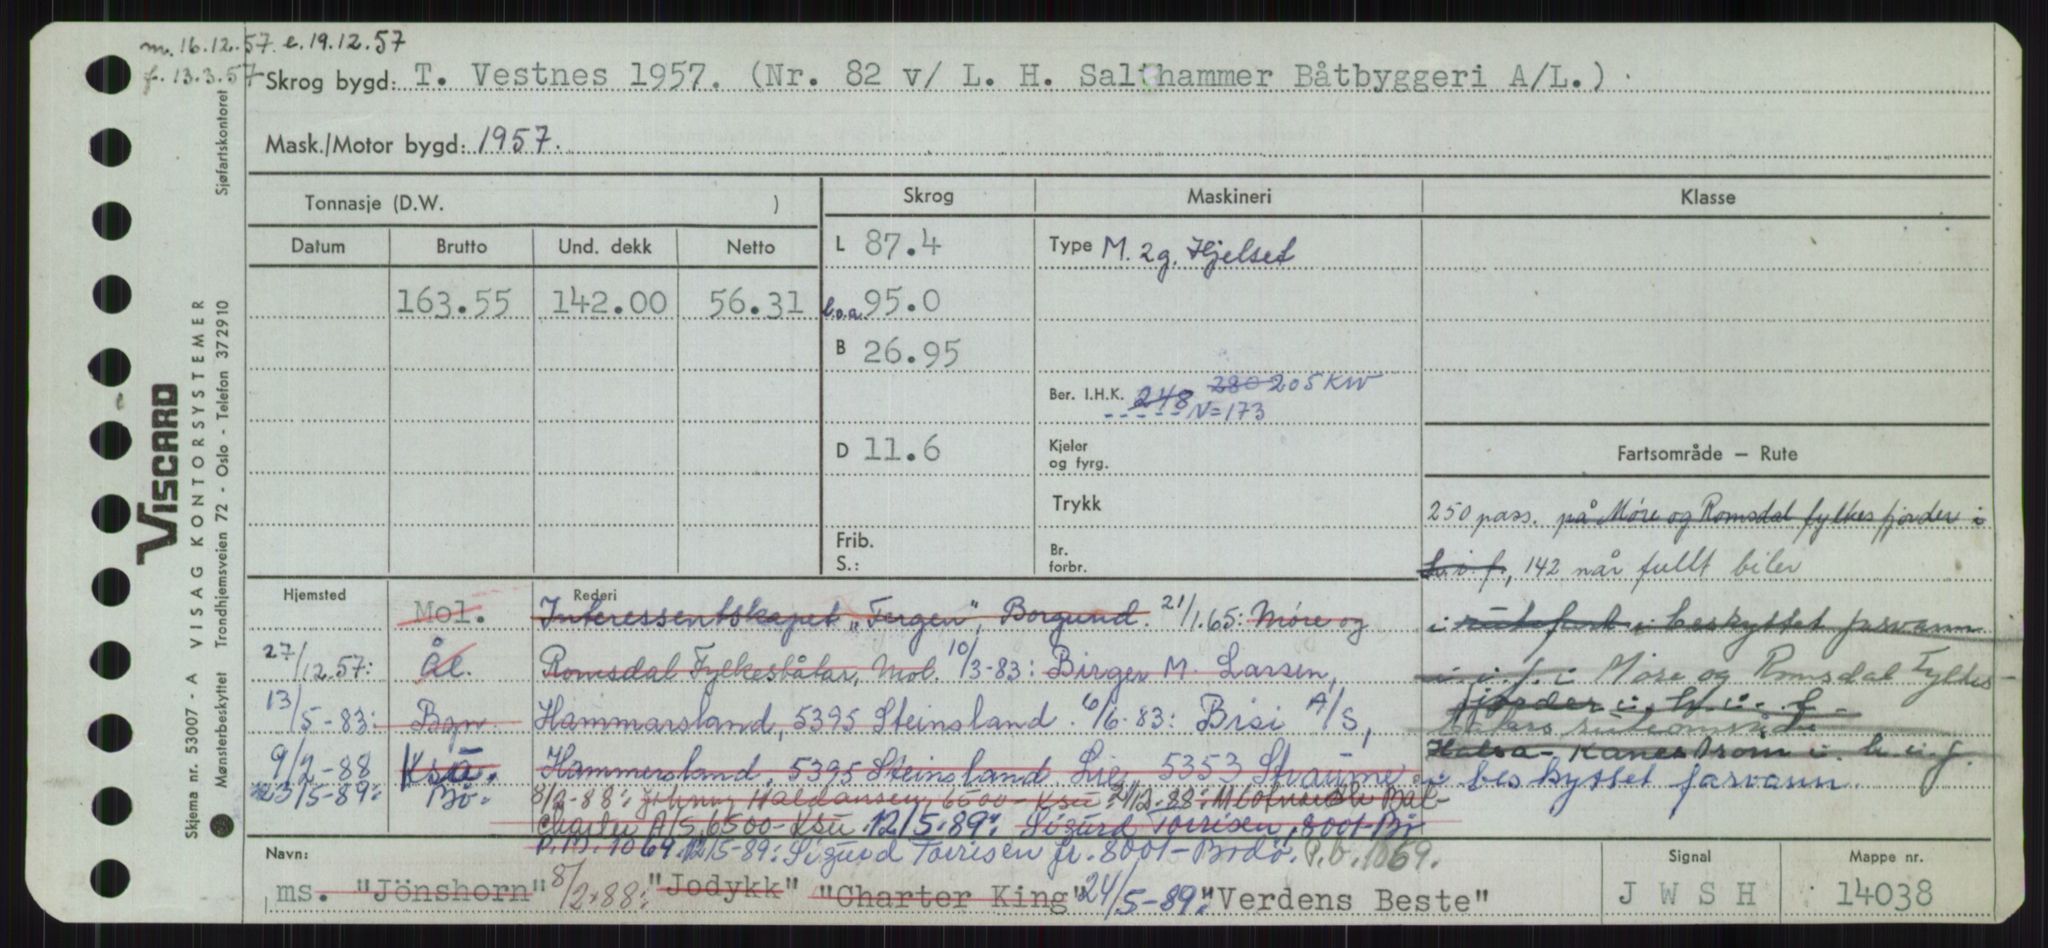 m. 16.12.57. e. 19.12.57
f. 13.3.57
Skrog bygd: T. Vestnes 1957. (Nr. 82 v/ L. H. Salthammer Båtbyggeri A/L.)
Mask./Motor bygd: 1957.
Tonnasje (D.W. )
Skrog
Maskineri
Klasse
Datum Brutto Und. dekk Netto
L 87.4
Type M. 2g. Hjelset
163.55 142.00 56.31
l.o.a. 95.0
B 26.95
Ber. I.H.K. 248 280 205 KW
N=173
D 11.6
Kjeler
og fyrg.
Trykk
Frib.
S.:
Br.
forbr.
Fartsområde – Rute
250 pass. på Møre og Romsdal fylkes fjorder i
h.i.f., 142 når fullt biler
i rutefart i beskyttet farvann
i.f. i Møre og Romsdal Fylkes
fjorder i. h. i. f.
Halsa - Kanestrøm i. h. i. f.
i beskyttet farvann.
Hjemsted
Rederi
Mol. Interessentskapet "Fergen", Borgund. 21/1.65: Møre og
27/12.57: Ål. Romsdal Fylkesbåtar, Mol. 10/3-83: Birger M. Larsen,
13/5-83: Bgn. Hammarsland, 5395 Steinsland. 6/6-83: Brisi A/S,
9/2-88 Ksu. Hammersland, 5395 Steinsland, Lie, 5353 Straume
23/5-89: Bø. 8/2-88: Johnny Haldorsen, 6500-Ksu. 21/12-88: Båt-
Charter A/S, 6500-Ksu. 12/5-89: Sigurd Torrisen, 8001-Bø
P.B. 1069. 12/5-89: Sigurd Torrisen fr. 8001-Bodø. P.b. 1069.
Navn:
ms. "Jönshorn" 8/2-88: "Jodykk" "Charter King" 24/5-89: "Verdens Beste"
Signal
J W S H
Mappe nr.
14038
VISCARD
VISAG KONTORSYSTEMER
Skjema nr. 53007 - A
Mønsterbeskyttet
Trondhjemsveien 72 - Oslo - Telefon 372910
Sjøfartskontoret